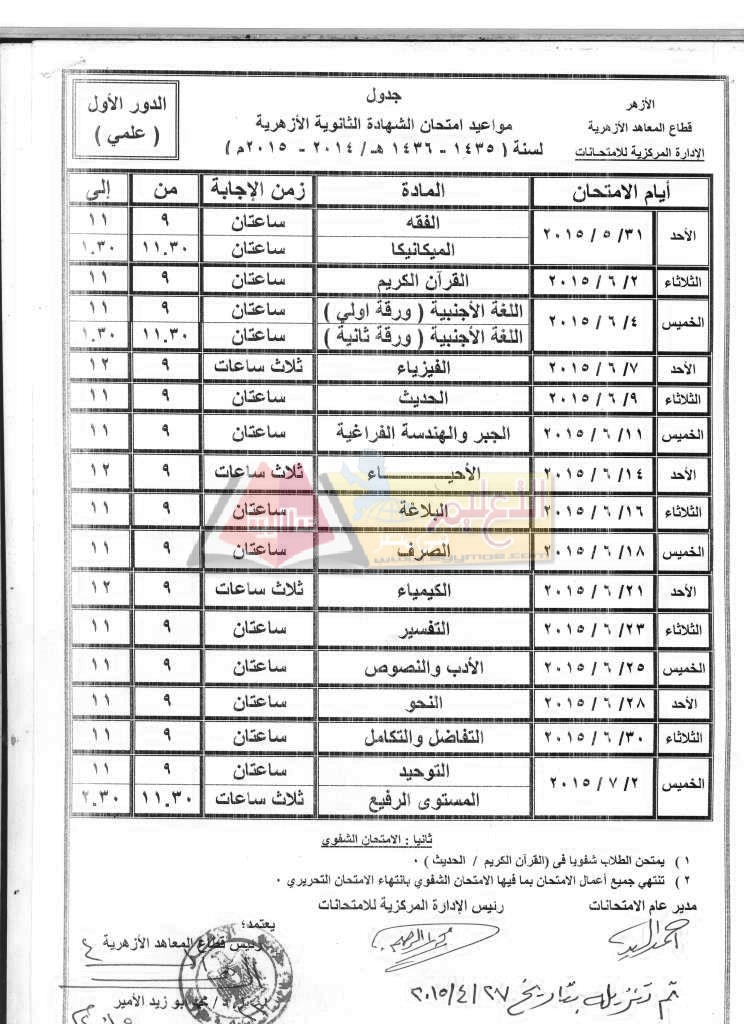 الأزهر
قطاع المعاهد الأزهرية
الإدارة المركزية للامتحانات
جدول
مواعيد امتحان الشهادة الثانوية الأزهرية
لسنة ( ١٤٣٥ - ١٤٣٦ هـ / ٢٠١٤ - ٢٠١٥م )
الدور الأول
( علمي )
أيام الامتحان المادة زمن الإجابة من إلى
الأحد ٣١/ ٥ / ٢٠١٥ الفقه ساعتان ٩ ١١
الميكانيكا ساعتان ١١.٣٠ ١.٣٠
الثلاثاء ٢/ ٦ / ٢٠١٥ القرآن الكريم ساعتان ٩ ١١
الخميس ٤/ ٦ / ٢٠١٥ اللغة الأجنبية ( ورقة اولي ) ساعتان ٩ ١١
اللغة الأجنبية ( ورقة ثانية ) ساعتان ١١.٣٠ ١.٣٠
الأحد ٧/ ٦ / ٢٠١٥ الفيزياء ثلاث ساعات ٩ ١٢
الثلاثاء ٩/ ٦ / ٢٠١٥ الحديث ساعتان ٩ ١١
الخميس ١١/ ٦ / ٢٠١٥ الجبر والهندسة الفراغية ساعتان ٩ ١١
الأحد ١٤/ ٦ / ٢٠١٥ الأحيـــــــــاء ثلاث ساعات ٩ ١٢
الثلاثاء ١٦/ ٦ / ٢٠١٥ البلاغة ساعتان ٩ ١١
الخميس ١٨/ ٦ / ٢٠١٥ الصرف ساعتان ٩ ١١
الأحد ٢١/ ٦ / ٢٠١٥ الكيمياء ثلاث ساعات ٩ ١٢
الثلاثاء ٢٣/ ٦ / ٢٠١٥ التفسير ساعتان ٩ ١١
الخميس ٢٥/ ٦ / ٢٠١٥ الأدب والنصوص ساعتان ٩ ١١
الأحد ٢٨/ ٦ / ٢٠١٥ النحو ساعتان ٩ ١١
الثلاثاء ٣٠/ ٦ / ٢٠١٥ التفاضل والتكامل ساعتان ٩ ١١
الخميس ٢/ ٧ / ٢٠١٥ التوحيد ساعتان ٩ ١١
المستوى الرفيع ثلاث ساعات ١١.٣٠ ٢.٣٠
ثانيا : الامتحان الشفوي
١ ) يمتحن الطلاب شفويا فى (القرآن الكريم / الحديث ) ٠
٢ ) تنتهي جميع أعمال الامتحان بما فيها الامتحان الشفوي بانتهاء الامتحان التحريري ٠
مدير عام الامتحانات رئيس الإدارة المركزية للامتحانات
يعتمد؛
رئيس قطاع المعاهد الأزهرية
أبو زيد الأمير
تم تنزيله بتاريخ ٢٧/٤/٢٠١٥
التعليم